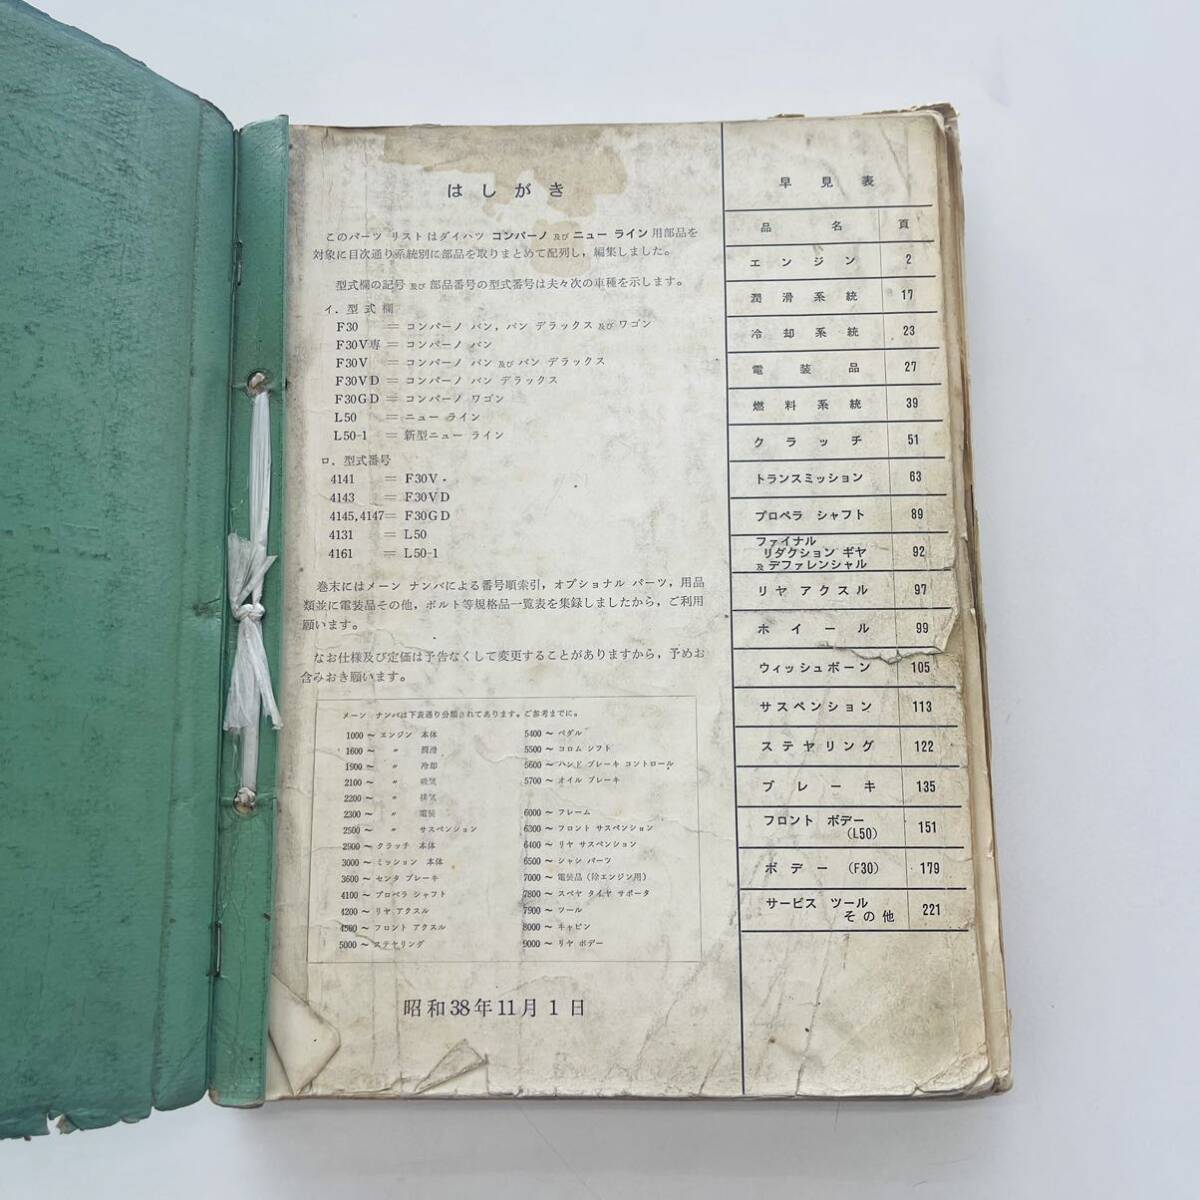 はしがき
このパーツ リストはダイハツ コンパーノ 及び ニュー ライン用部品を
対象に目次通り系統別に部品を取りまとめて配列し，編集しました。
型式欄の記号 及び 部品番号の型式番号は夫々次の車種を示します。
イ．型式欄
F30 ＝ コンパーノ バン，バン デラックス 及び ワゴン
F30V専 ＝ コンパーノ バン
F30V ＝ コンパーノ バン 及び バン デラックス
F30VD ＝ コンパーノ バン デラックス
F30GD ＝ コンパーノ ワゴン
L50 ＝ ニュー ライン
L50-1 ＝ 新型ニュー ライン
ロ．型式番号
4141 ＝ F30V
4143 ＝ F30VD
4145,4147＝ F30GD
4131 ＝ L50
4161 ＝ L50-1
巻末にはメーン ナンバによる番号順索引，オプショナル パーツ，用品
類並に電装品その他，ボルト等規格品一覧表を集録しましたから，ご利用
願います。
なお仕様及び定価は予告なくして変更することがありますから，予めお
含みおき願います。
メーン ナンバは下表通り分類されてあります。ご参考までに。
1000～エンジン 本体
1600～ 〃 潤滑
1900～ 〃 冷却
2100～ 〃 吸気
2200～ 〃 排気
2300～ 〃 電装
2500～ 〃 サスペンション
2900～クラッチ 本体
3000～ミッション 本体
3600～センタ ブレーキ
4100～プロペラ シャフト
4200～リヤ アクスル
4500～フロント アクスル
5000～ステヤリング
5400～ペダル
5500～コロム シフト
5600～ハンド ブレーキ コントロール
5700～オイル ブレーキ
6000～フレーム
6300～フロント サスペンション
6400～リヤ サスペンション
6500～シャシ パーツ
7000～電装品（除エンジン用）
7800～スペヤ タイヤ サポータ
7900～ツール
8000～キャビン
9000～リヤ ボデー
昭和38年11月1日
早見表
品名 頁
エンジン 2
潤滑系統 17
冷却系統 23
電装品 27
燃料系統 39
クラッチ 51
トランスミッション 63
プロペラ シャフト 89
ファイナル
リダクション ギヤ 92
及 デファレンシャル
リヤ アクスル 97
ホイール 99
ウィッシュボーン 105
サスペンション 113
ステヤリング 122
ブレーキ 135
フロント ボデー
(L50) 151
ボデー (F30) 179
サービス ツール
その他 221